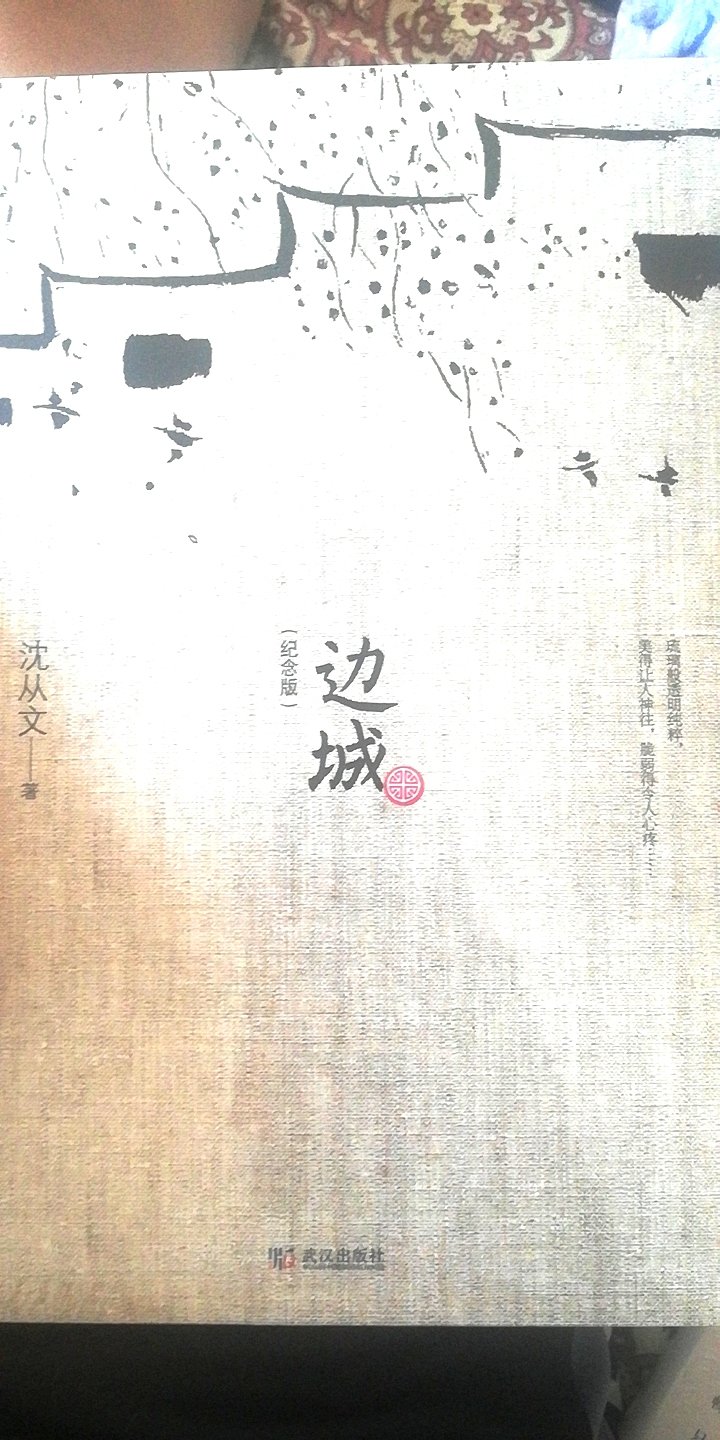 琉璃般透明纯粹，
美得让人神往，脆弱得令人心疼……
边城
（纪念版）
沈从文——著
武汉出版社